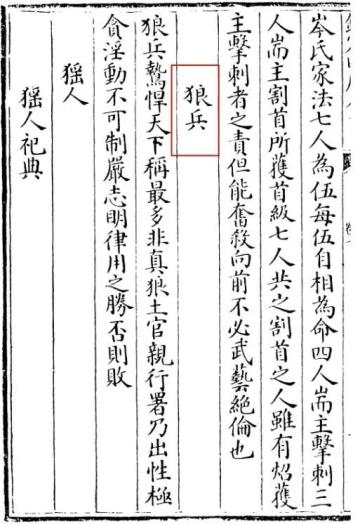 岑氏家法七人為伍每伍自相為命四人耑主擊刺三
人耑主割首所獲首級七人共之割首之人雖有照護
主擊刺者之責但能奮殺向前不必武藝絕倫也
狼兵
狼兵鷙悍天下稱最多非真狼土官親行署乃出性極
貪淫動不可制嚴志明律用之勝否則敗
猺人
猺人祀典